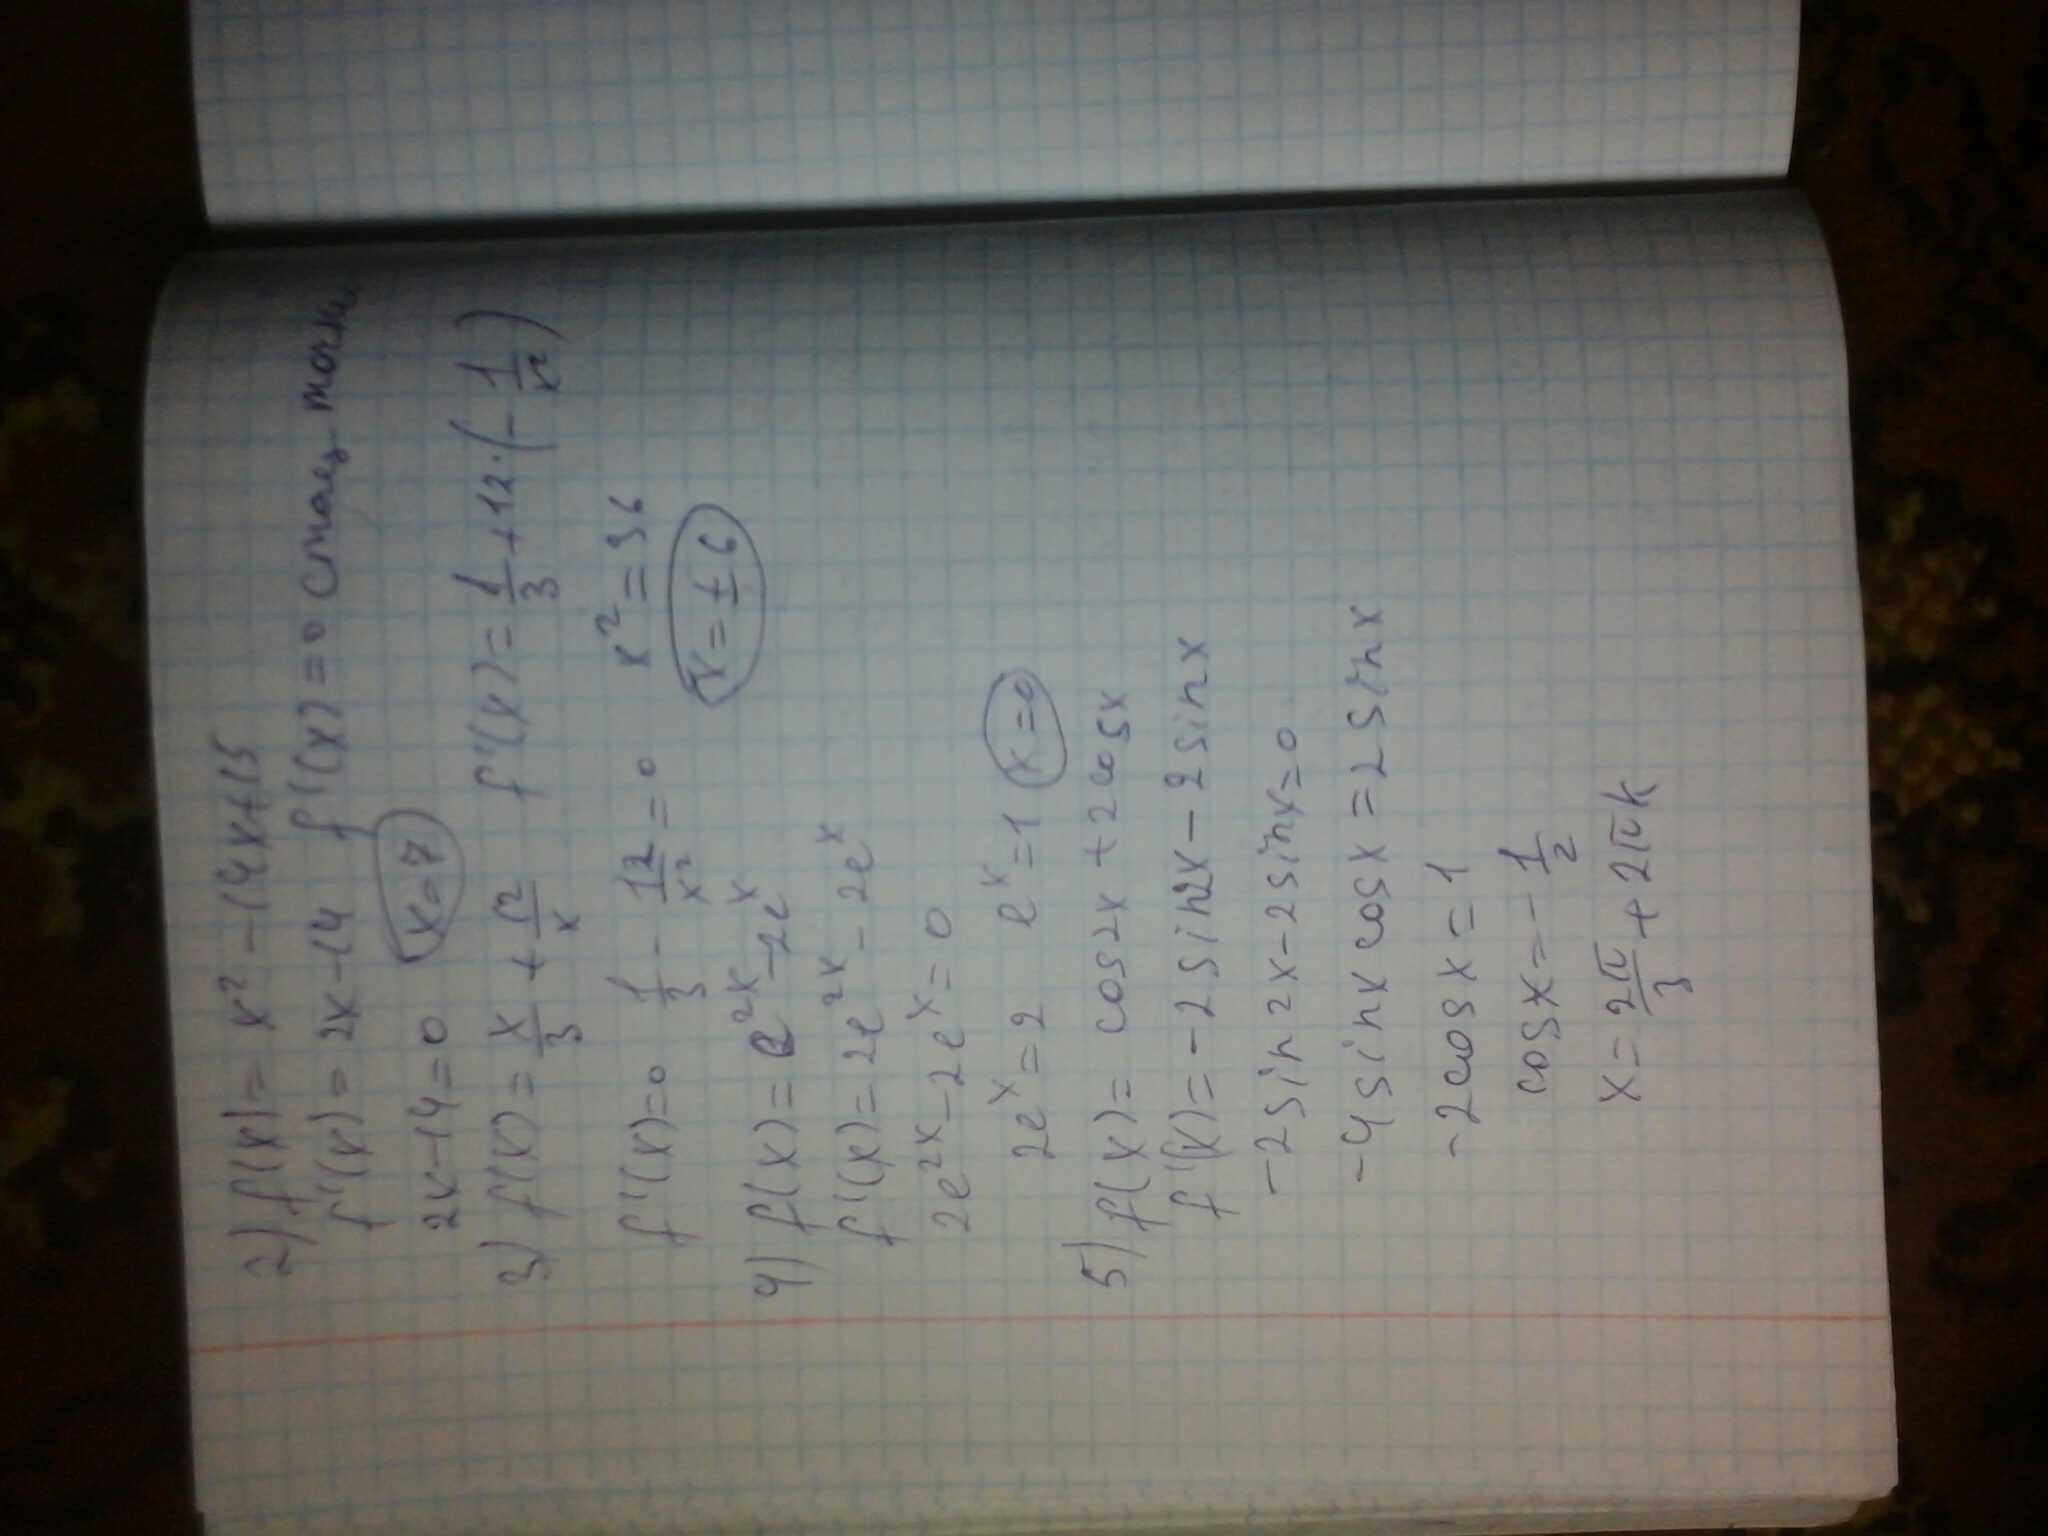 2) f(x) = x² - 14x + 15
f'(x) = 2x - 14 f'(x) = 0 стац. точки
2x - 14 = 0 x = 7
3) f(x) = x/3 + 12/x f'(x) = 1/3 + 12·(- 1/x²)
f'(x) = 0 1/3 - 12/x² = 0 x² = 36
x = ± 6
4) f(x) = e^2x - 2e^x
f'(x) = 2e^2x - 2e^x
2e^2x - 2e^x = 0
2e^x = 2 e^x = 1 x = 0
5) f(x) = cos2x + 2cosx
f'(x) = - 2sin2x - 2sinx
- 2sin2x - 2sinx = 0
- 4sinx cosx = 2sinx
- 2cosx = 1
cosx = - 1/2
x = 2π/3 + 2πk